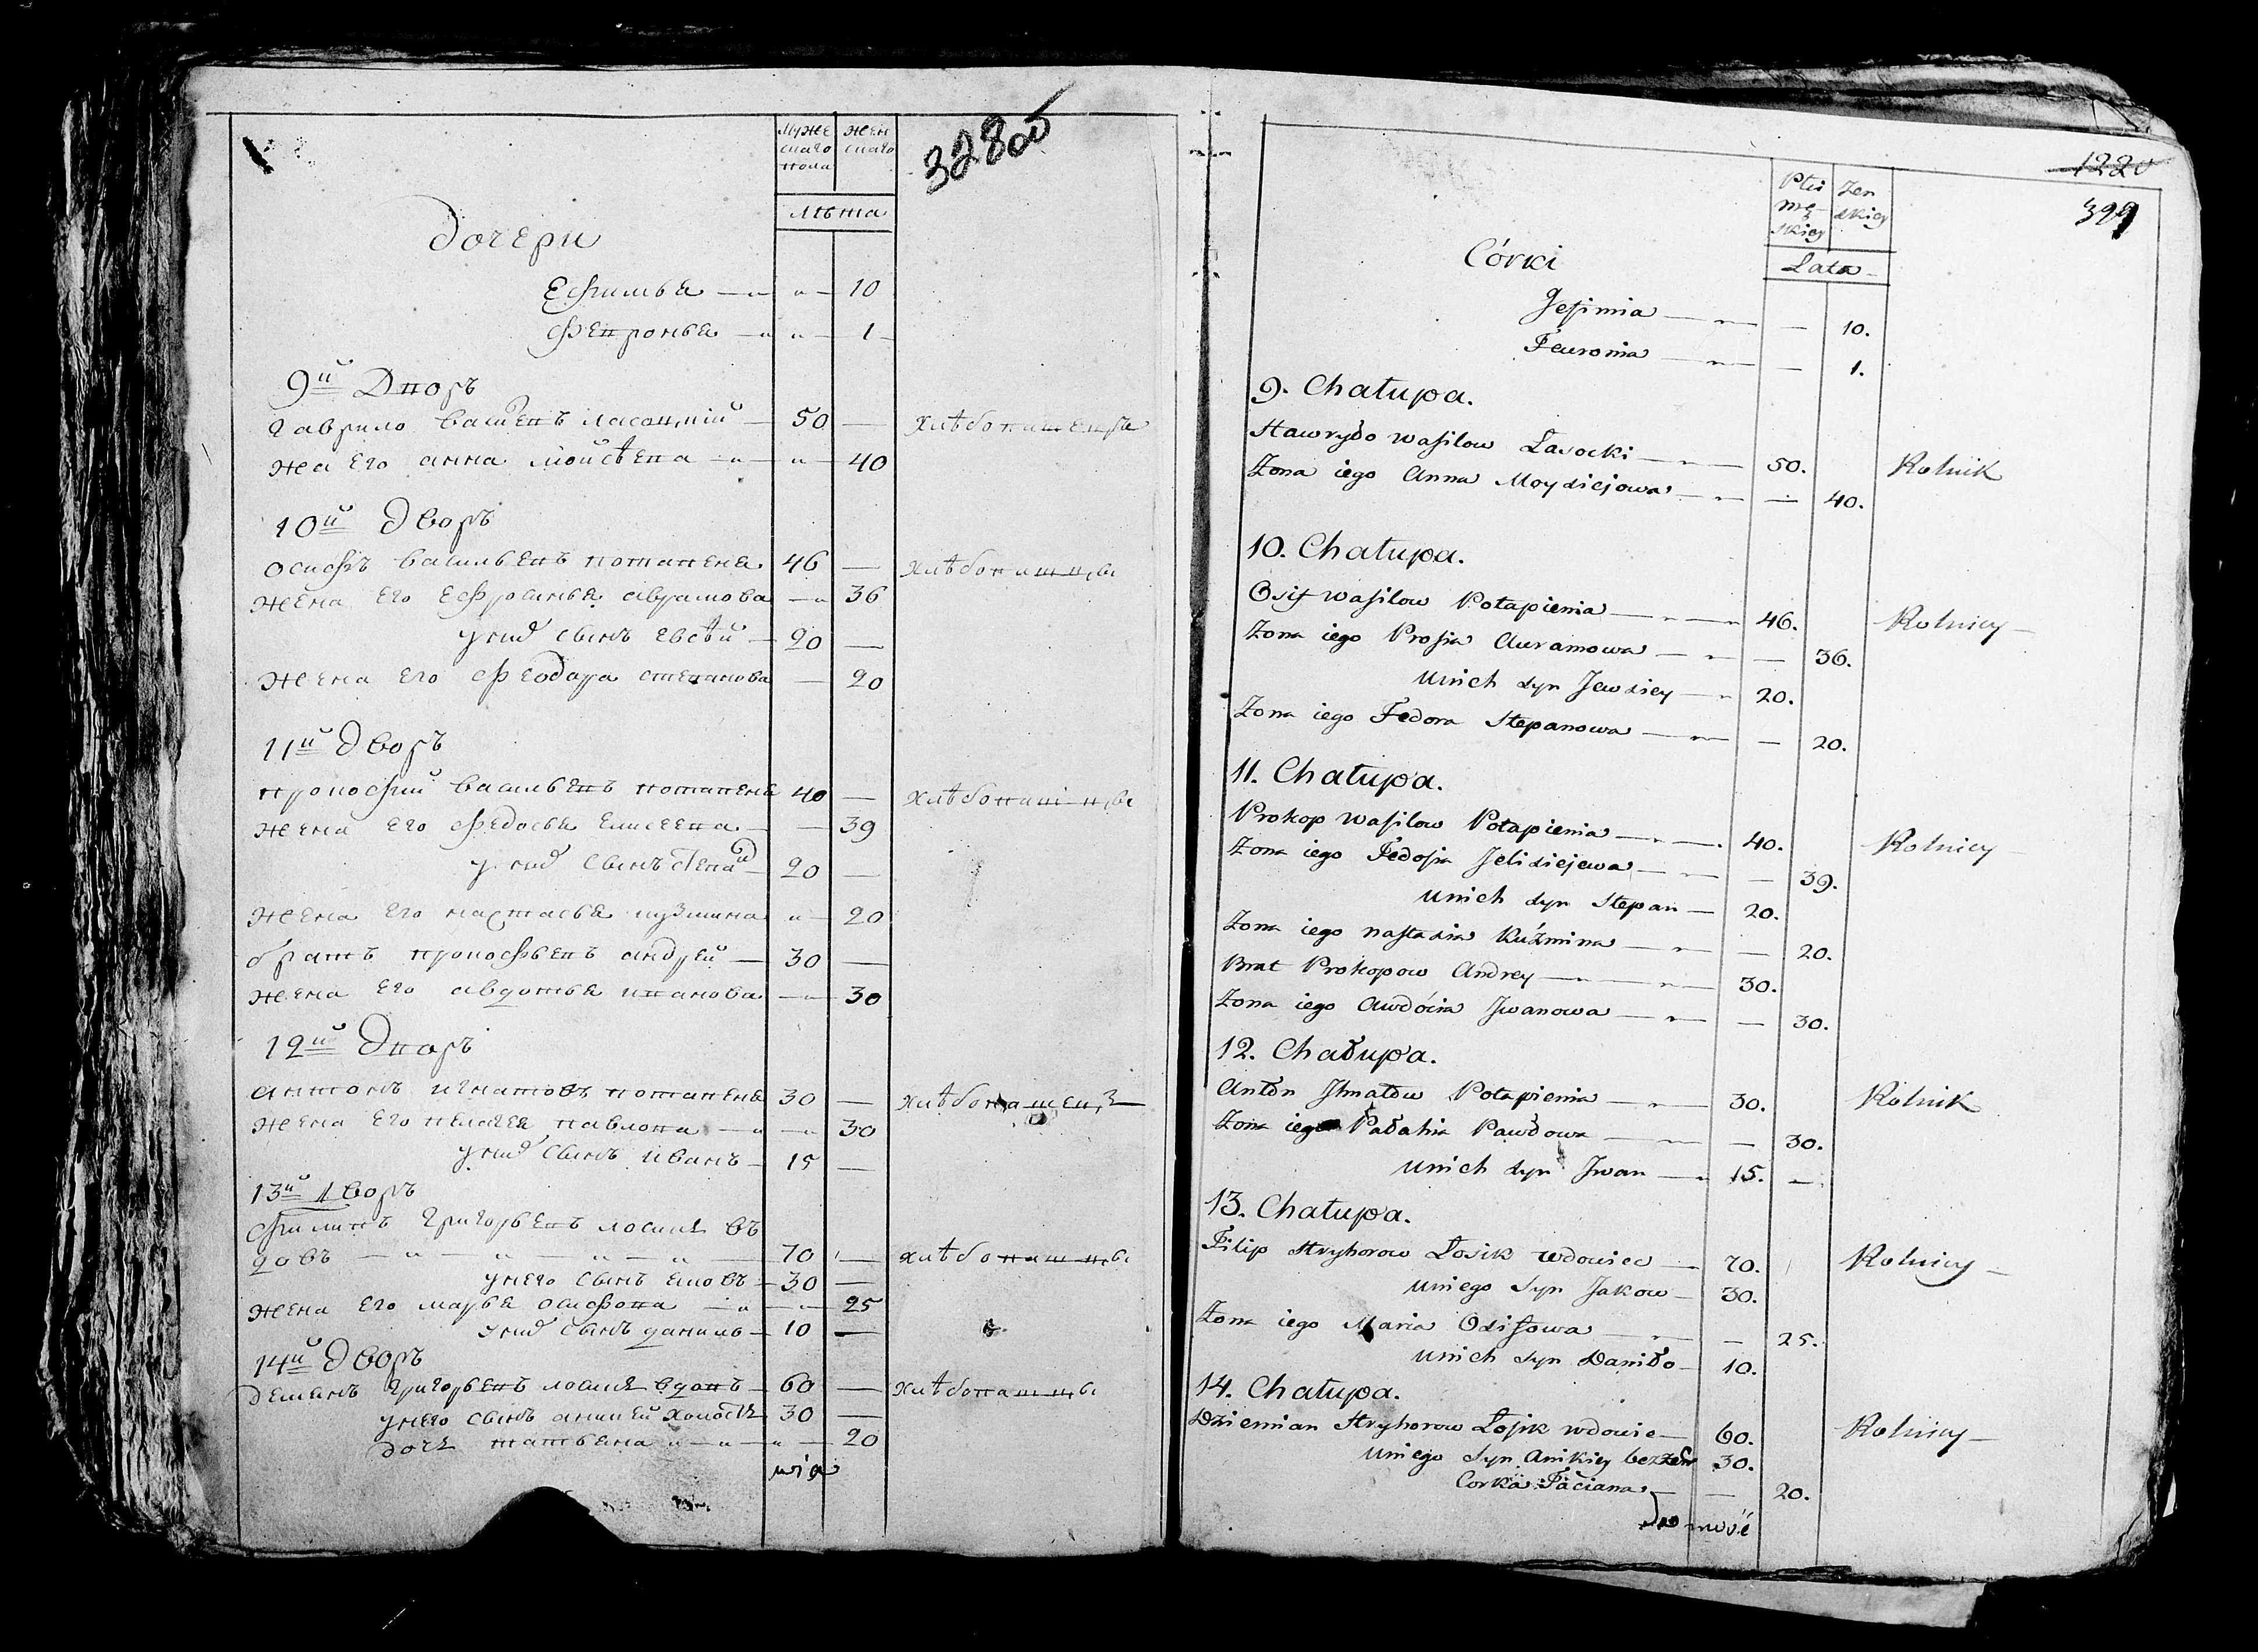 Муже
скаго
пола
Жен
скаго
328об
Лѣта
Дочери
Ефимья — 10
Февронья — 1
9й Дворъ
Гаврило Василевъ Ласоцкій — 50 — хлѣбопашецъ
жена Его анна мойсѣева — 40
10й дворъ
осифъ васильевъ потапеня 46 — хлѣбопашцы
жена Его Ефросинья аврамова — 36
у них сынъ евсѣй — 20 —
жена его феодора степанова — 20
11й дворъ
прокофий васильевъ потапеня 40 — хлѣбопашцы
жена его федосья елисеева — 39
у них сынъ степан — 20 —
жена его настасья кузмина — 20
братъ прокофьевъ андрей — 30 —
жена его авдотья иванова — 30
12й дворъ
антонъ игнатовъ потапеня 30 — хлѣбопашецъ
жена его пелагея павлова — 30
у них сынъ иванъ — 15 —
13й дворъ
филипъ григорьевъ лосик въ
довъ — 70 — хлѣбопашцы
у него сынъ яковъ — 30 —
жена его марья осифова — 25
у них сынъ данило — 10 —
14й дворъ
демянъ григорьевъ лосик вдовъ — 60 — хлѣбопашцы
у него сынъ аникей холостъ 30 —
дочь татьяна — 20
1220
399
Płci
mę
skiey
żen
skiey
Lata
Córki
Jefimia — 10.
Feuronia — 1.
9. Chałupa.
Hawryło Wasilow Łasocki — 50. Rolnik
Żona iego Anna Moysiejowa — 40.
10. Chałupa.
Osif Wasilow Potapienia — 46. Rolnicy
Żona iego Prosia Auramowa — 36.
unich syn Jewsiey — 20.
Żona iego Fedora Stepanowa — 20.
11. Chałupa.
Prokop Wasilow Potapienia — 40. Rolnicy
Żona iego Fedosia Jelisiejewa — 39.
unich syn Stepan — 20.
Żona iego Nastasia Kuźmina — 20.
Brat Prokopow Andrey — 30.
Żona iego Awdócia Jwanowa — 30.
12. Chałupa.
Anton Ihnatow Potapienia — 30. Rolnik
Żona iego Pałahia Pawłowa — 30.
unich syn Jwan — 15. —
13. Chałupa.
Filip Hryhorow Łosik wdowiec — 70. Rolnicy
uniego syn Jakow — 30.
Żona iego Maria Osifowa — 25.
unich syn Daniło — 10.
14. Chałupa.
Dziemian Hryhorow Łosik wdowie — 60. Rolnicy
uniego syn Anikiey bezżen 30.
Corka Taciana — 20.